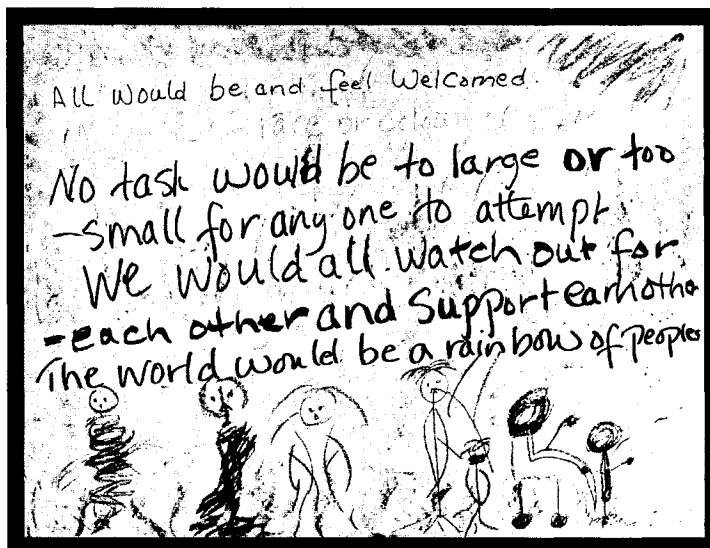 All would be and feel Welcomed.
race or
No task would be to large or too
-small for any one to attempt
We would all watch out for
-each other and Support earhothe
The world would be a rainbow of peoples